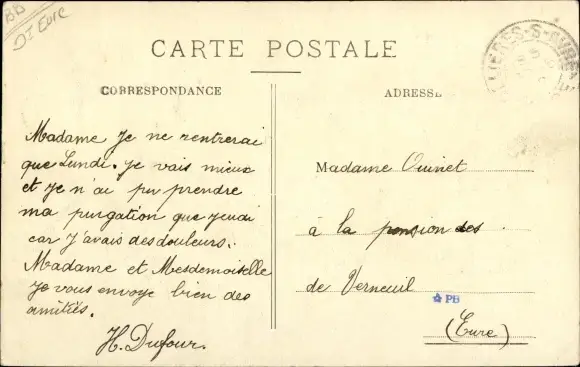 BB
DI Eure
CARTE POSTALE
CORRESPONDANCE
ADRESSE
Madame Je ne rentrerai
que Lundi. Je vais mieux
et Je n'ai pu prendre
ma purgation que Jeudi
car J'avais des douleurs.
Madame et Mesdemoiselle
Je vous envoye bien des
amitiés.
H. Dufour.
Madame Ouinet
à la pension des
de Verneuil
PB
(Eure)